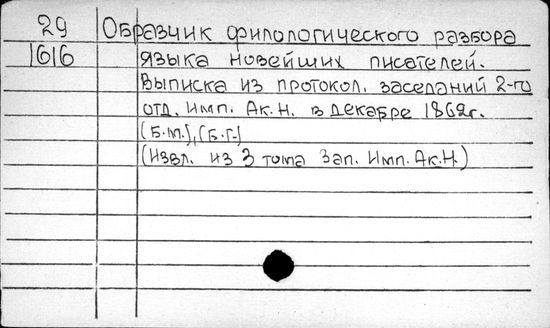 29 Образчик филологического разбора
1616 языка новейших писателей.
Выписка из протокол. заседаний 2-го
отд. Имп. Ак.Н. в декабре 1862г.
(Б.М.), (Б.Г.)
(Извл. из 3 тома Зап. Имп. Ак.Н.)